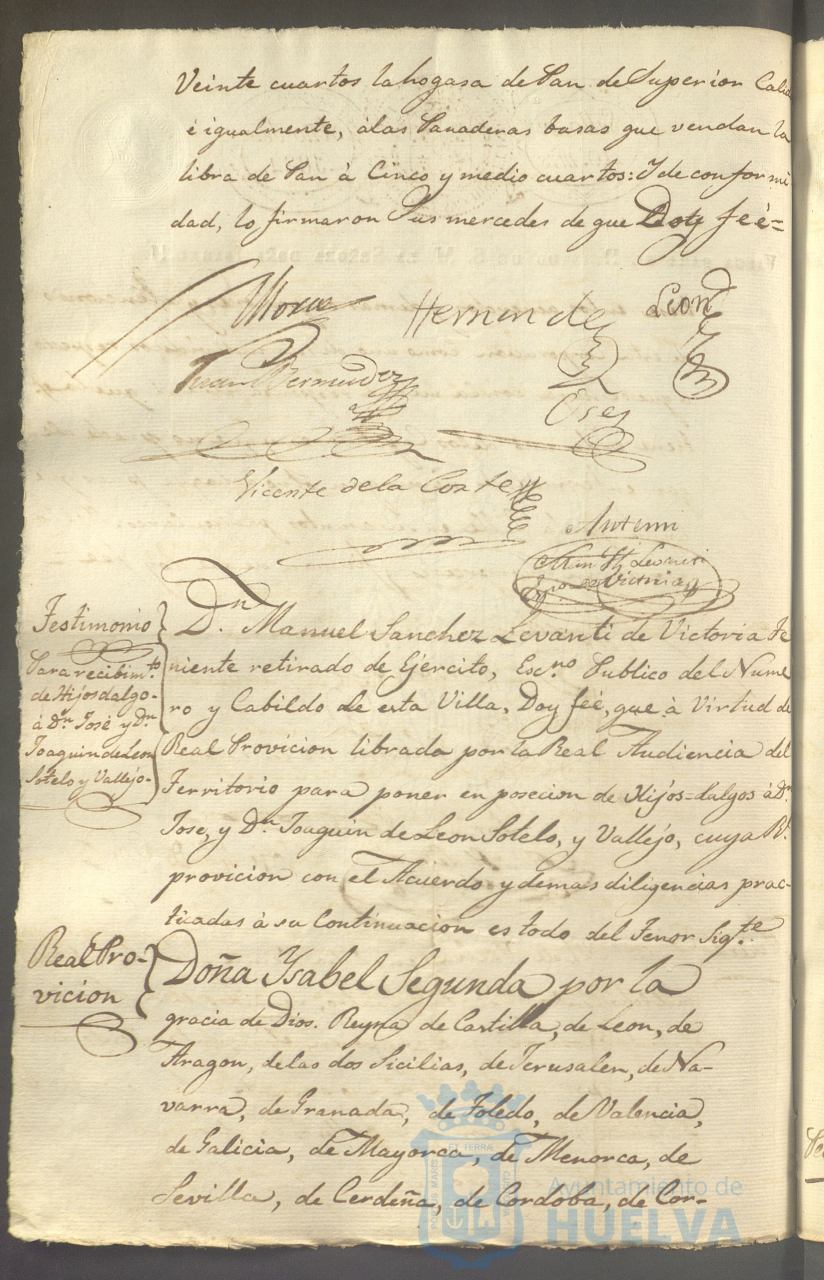 Veinte cuartos la hogasa de Pan de Superior Calid
é igualmente, á las Panaderas basas que vendan la
libra de Pan à Cinco y medio cuartos: Y de conformi
dad, lo firmaron Sus mercedes de que Doy feé=
Hernandez
Leon
Juan Bermudez
Vicente de la Corte
Antemi
Levanti
de Victoria
Testimonio
Para recibim.to
de Hijosdalgo
á Dn. José y Dn.
Joaquin de Leon
Sotelo y Vallejo.
Dn. Manuel Sanchez Levanti de Victoria Te
niente retirado de Ejército, Esc.no Publico del Nume
ro y Cabildo de esta Villa, Doy feé, que à Virtud de
Real Provicion librada por la Real Audiencia del
Territorio para poner en posecion de Hijos-dalgos á Dn.
Jose, y Dn. Joaquin de Leon Sotelo, y Vallejo, cuya Rl.
provicion con el Acuerdo y demas diligencias prac-
ticadas à su Continuacion es todo del Tenor Sig.te
Real Pro-
vicion
Doña Ysabel Segunda por la
gracia de Dios. Reyna de Castilla, de Leon, de
Aragon, de las dos Sicilias, de Jerusalen, de Na-
varra, de Granada, de Toledo, de Valencia,
de Galicia, de Mayorca, de Menorca, de
Sevilla, de Cerdeña, de Cordoba, de Cor-
Ayuntamiento de
HUELVA